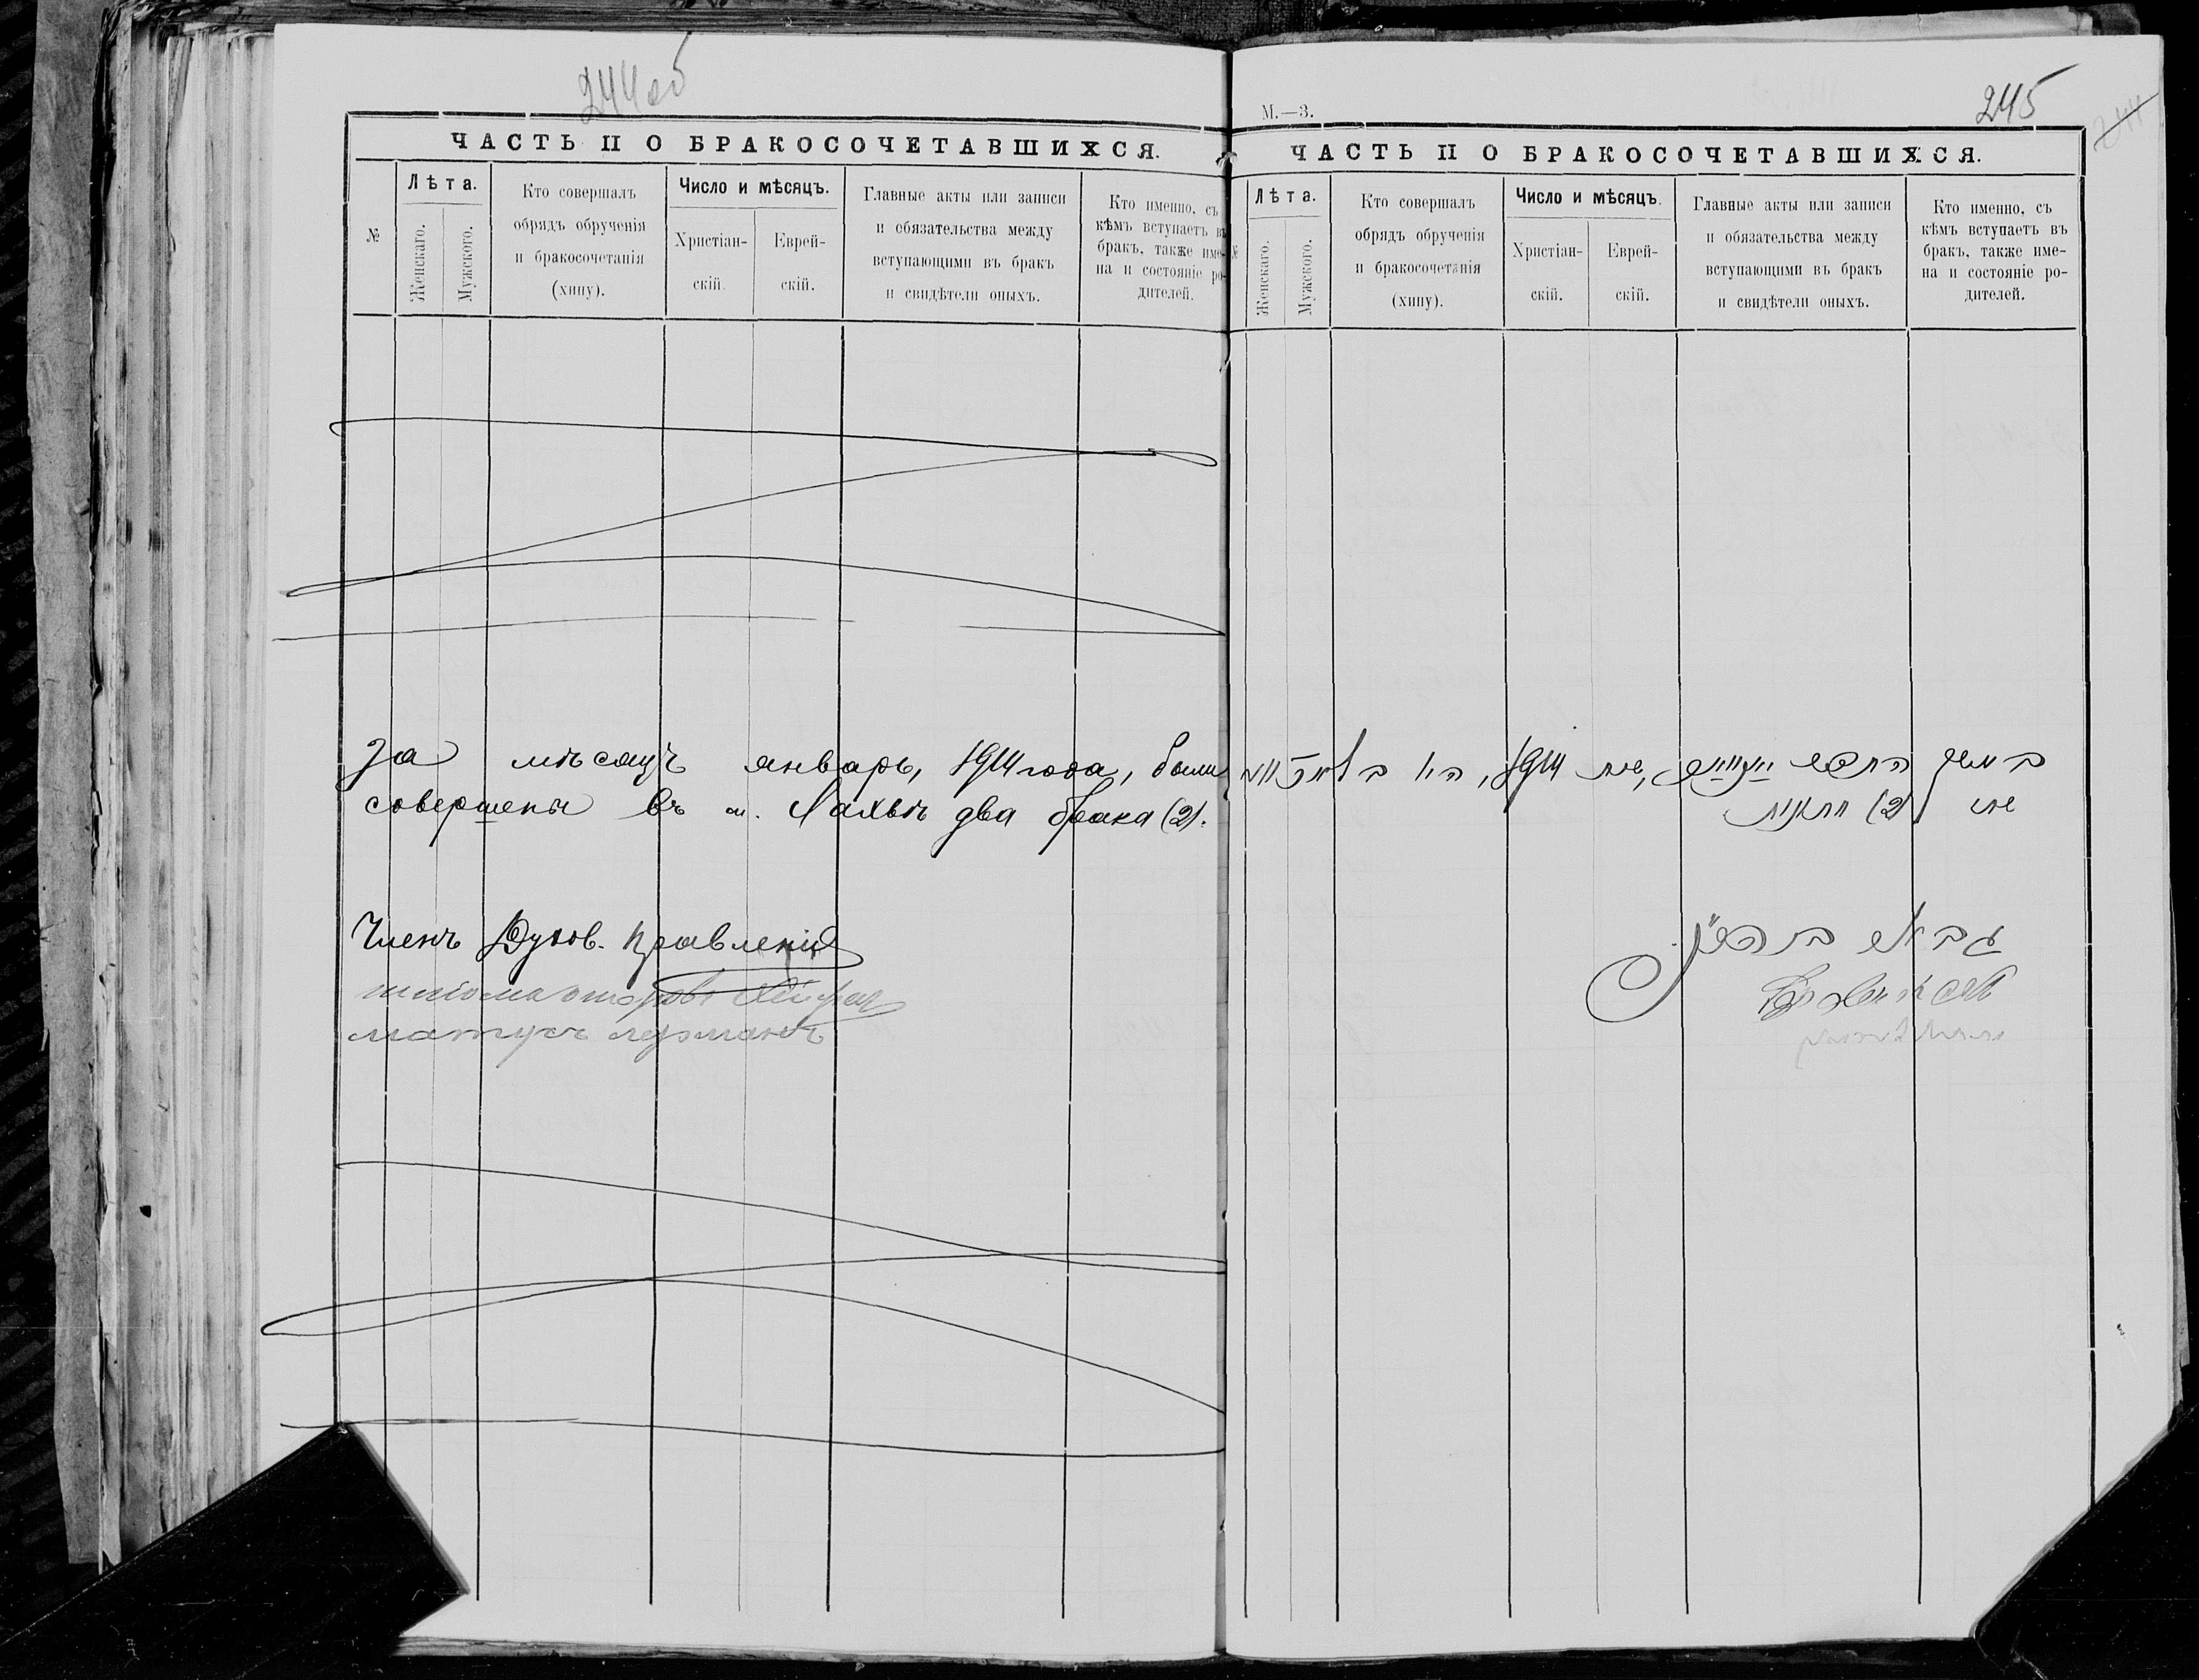 244об
ЧАСТЬ II О БРАКОСОЧЕТАВШИХСЯ.
№
Лѣта.
Женскаго.
Мужского.
Кто совершалъ
обрядъ обрученія
и бракосочетанія
(хипу).
Число и мѣсяцъ.
Христіан-
скій.
Еврей-
скій.
Главные акты или записи
и обязательства между
вступающими въ бракъ
и свидѣтели оныхъ.
Кто именно, съ
кѣмъ вступаетъ въ
бракъ, также име-
на и состояніе ро-
дителей.
За мѣсяцъ январь, 1914 года, были
совершены въ м. Лахвѣ два брака (2).
Членъ Духов. Правленія
матусъ
М.—3.
245
244
ЧАСТЬ II О БРАКОСОЧЕТАВШИХСЯ.
№
Лѣта.
Женскаго.
Мужского.
Кто совершалъ
обрядъ обрученія
и бракосочетанія
(хипу).
Число и мѣсяцъ.
Христіан-
скій.
Еврей-
скій.
Главные акты или записи
и обязательства между
вступающими въ бракъ
и свидѣтели оныхъ.
Кто именно, съ
кѣмъ вступаетъ въ
бракъ, также име-
на и состояніе ро-
дителей.
במשך החדש שנת 1914, היו
שתי (2) חתונות
גבאי